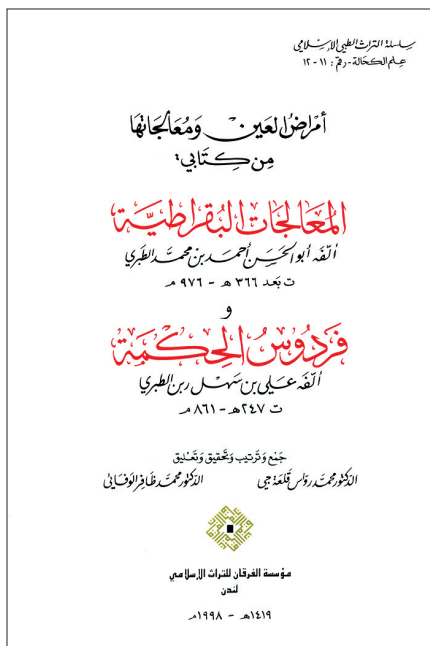 سلسلة التراث الطبي الإسلامي
علم الكحالة - رقم : ١١ - ١٢
أمراض العين ومعالجاتها
من كتابي :
المعالجات البقراطية
ألفه أبو الحسن أحمد بن محمد الطبري
ت بعد ٣٦٦ هـ - ٩٧٦ م
و
فردوس الحكمة
ألفه علي بن سهل ربن الطبري
ت ٢٤٧ هـ - ٨٦١ م
جمع وترتيب وتحقيق وتعليق
الدكتور محمد رواس قلعة جي الدكتور محمد ظافر الوفائي
مؤسسة الفرقان للتراث الإسلامي
لندن
١٤١٩هـ - ١٩٩٨م